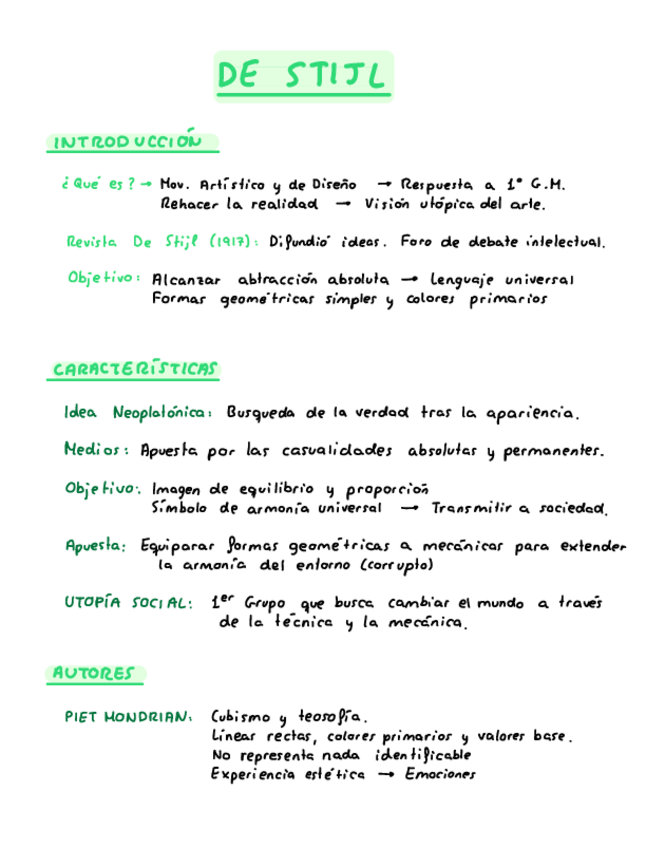 DE STIJL
INTRODUCCIÓN
¿Qué es? → Mov. Artístico y de Diseño → Respuesta a 1ª G.M.
Rehacer la realidad → Visión utópica del arte.
Revista De Stijl (1917): Difundió ideas. Foro de debate intelectual.
Objetivo: Alcanzar abtracción absoluta → Lenguaje universal
Formas geométricas simples y colores primarios
CARACTERÍSTICAS
Idea Neoplatónica: Busqueda de la verdad tras la apariencia.
Medios: Apuesta por las casualidades absolutas y permanentes.
Objetivo: Imagen de equilibrio y proporción
Símbolo de armonía universal → Transmitir a sociedad.
Apuesta: Equiparar formas geométricas a mecánicas para extender
la armonía del entorno (corrupto)
UTOPÍA SOCIAL: 1er Grupo que busca cambiar el mundo a través
de la técnica y la mecánica.
AUTORES
PIET MONDRIAN: Cubismo y teosofía.
Líneas rectas, colores primarios y valores base.
No representa nada identificable
Experiencia estética → Emociones